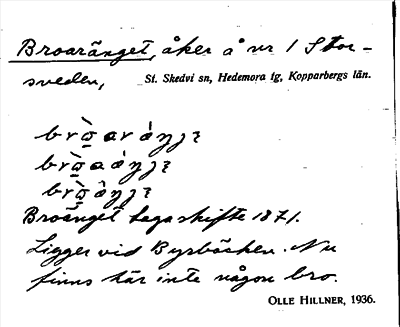 Broaränget, åker å nr 1 Stor-
sveden, St. Skedvi sn, Hedemora tg, Kopparbergs län.
Broänget laga skifte 1871.
Ligger vid Byrbäcken. Nu
finns här inte någon bro.
OLLE HILLNER, 1936.